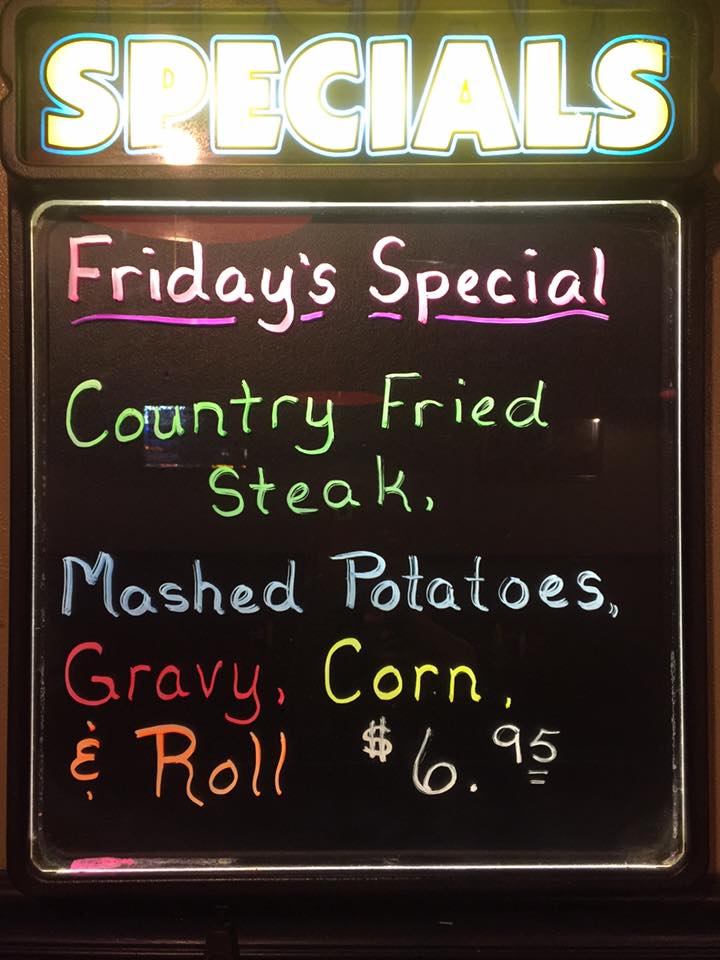 SPECIALS
Friday's Special
Country Fried
Steak,
Mashed Potatoes,,
Gravy, Corn,
& Roll $6.95